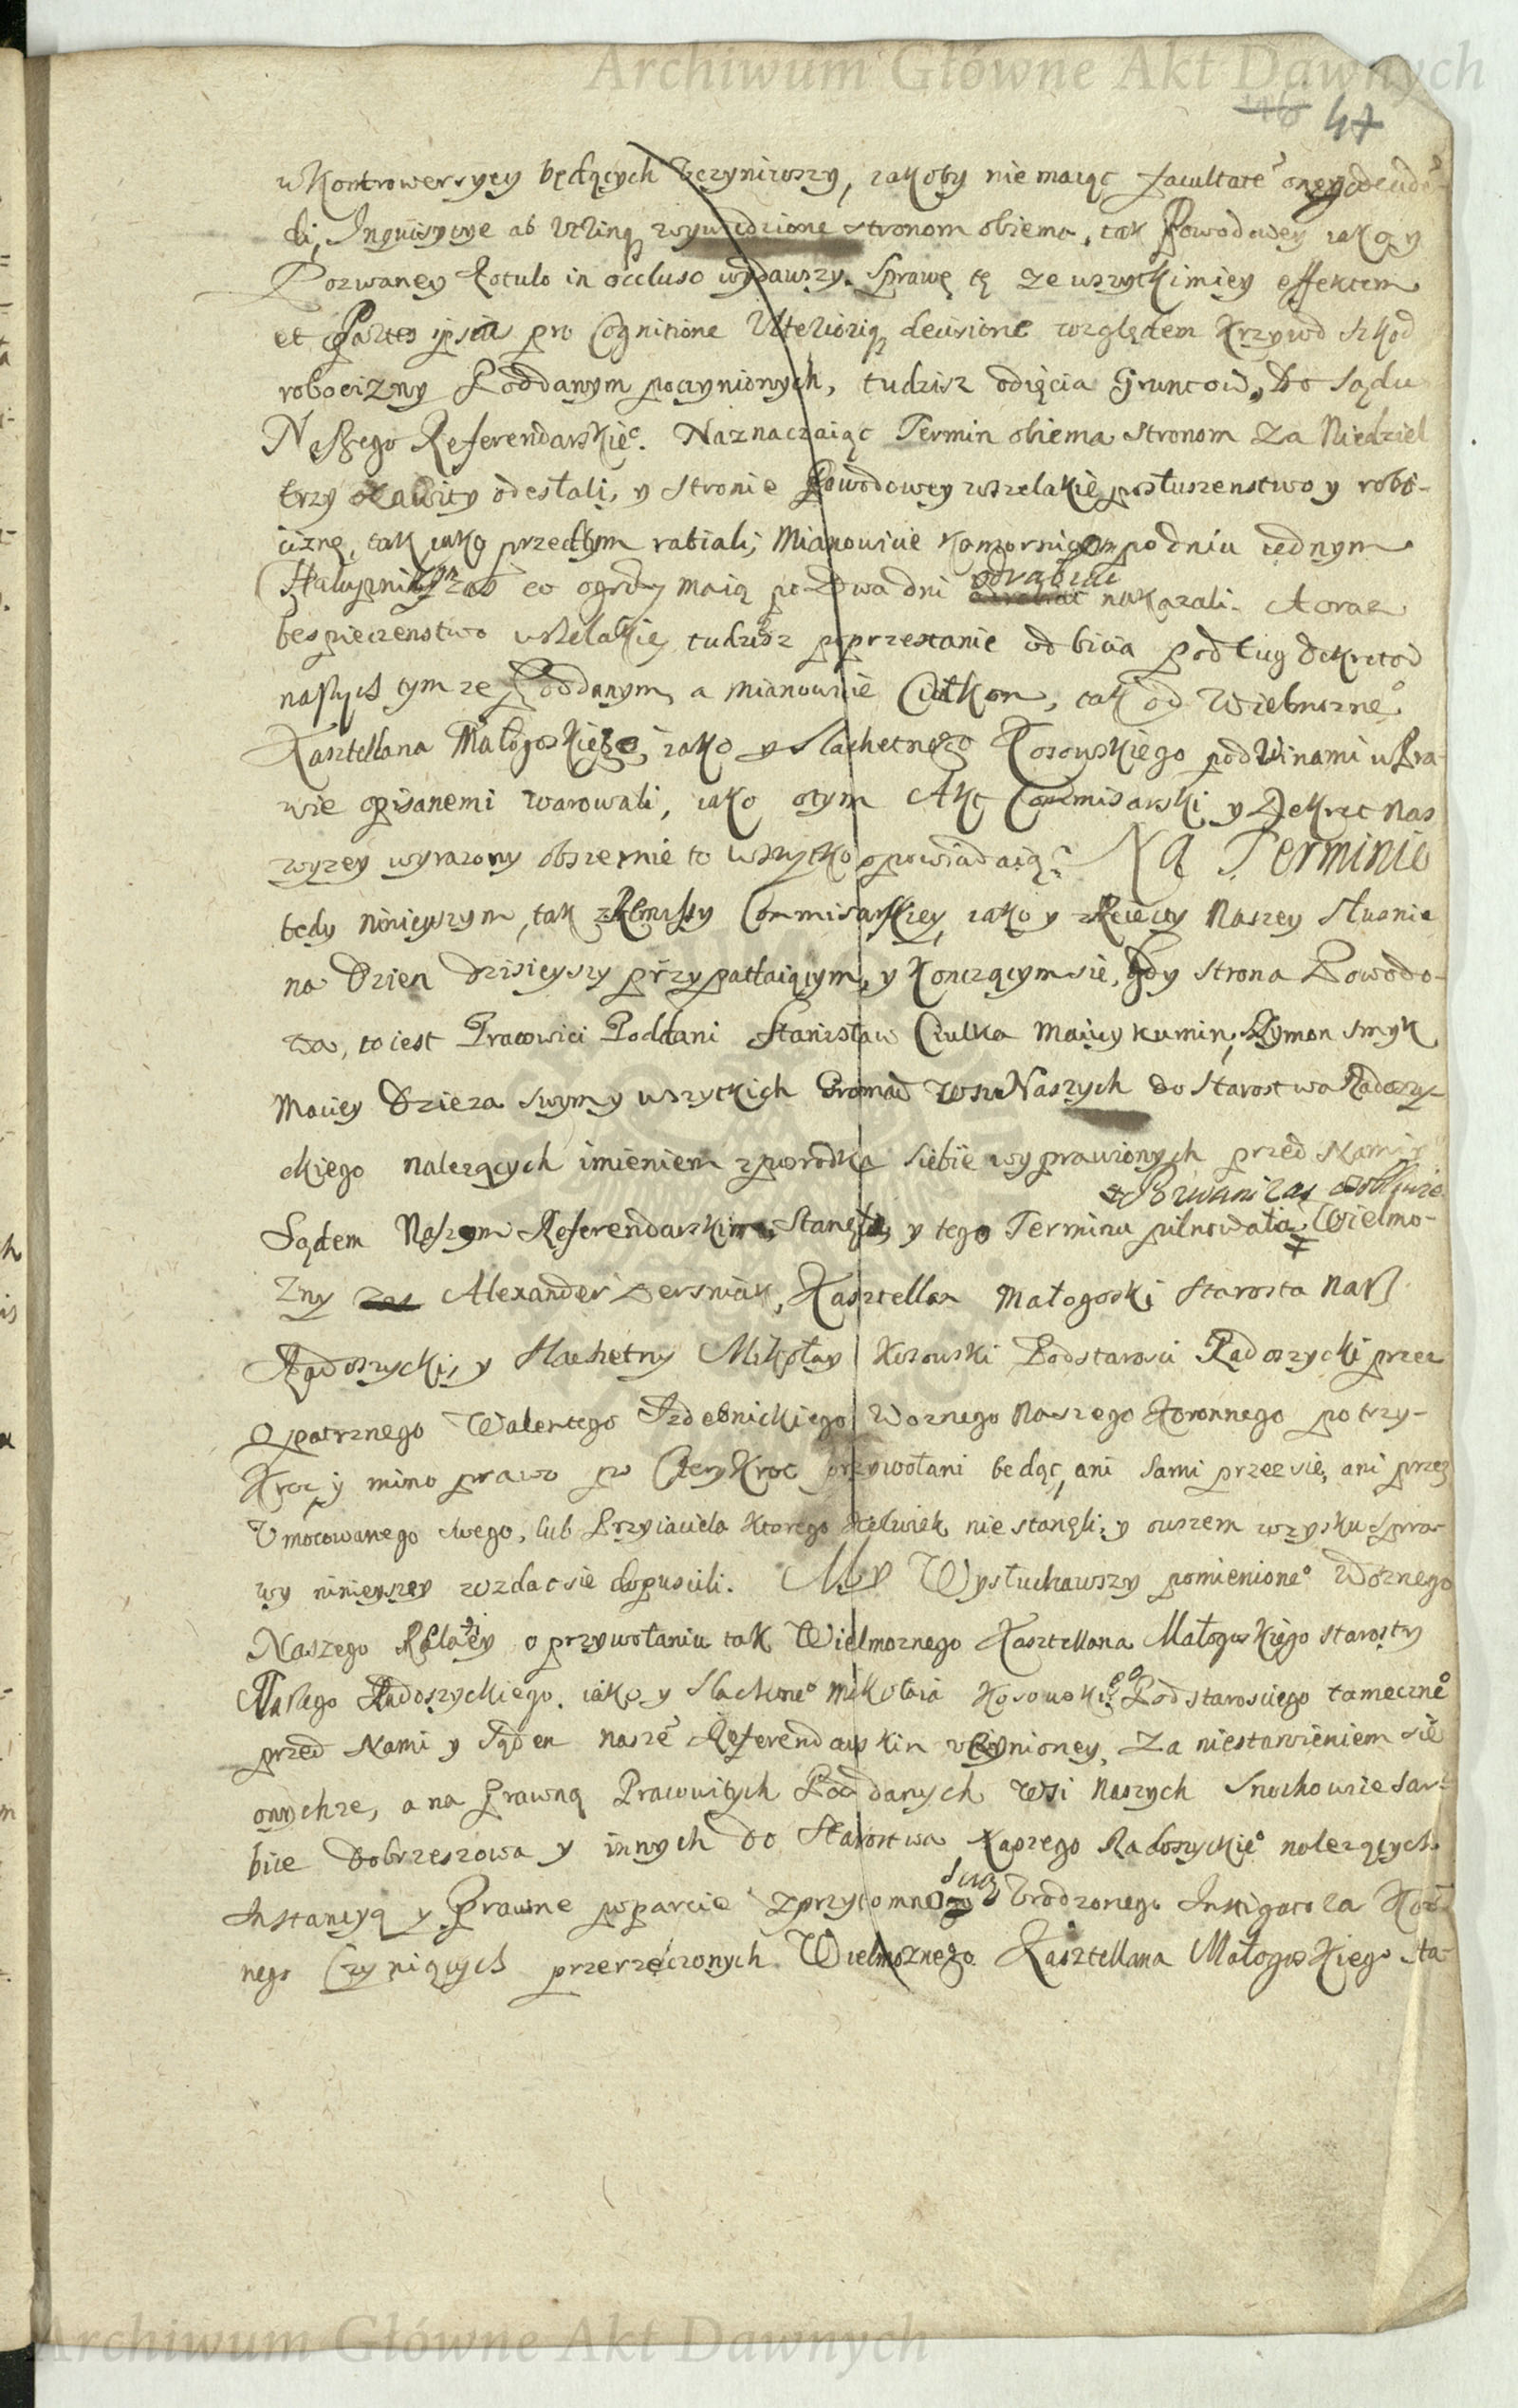 Archiwum Główne Akt Dawnych
47
w Kontrowersyey będących Uczyniwszy, iakoby nie maiąc facultatē
di, Inquisycye ab Utrinq wywiedzione stronom obiema, tak Powodowey iako y
Pozwaney Rotulo in occluso wydawszy. Sprawę tę ze wszytkimiey effektem
et Partes ipsas pro Cognitione Ulterioriq decisione względem Krzywd szkod
robocizny Poddanym poczynionych, tudzisz odięcia Gruntow, Do Sądu
Naszego Referendarskieº. Naznaczaiąc Termin obiema stronom za Niedziel
trzy odesłali, y stronie Powodowey wszelakie posłuszenstwo y robo-
ciznę, tak iako przedtym rabiali, Mianowicie Komornicom po dniu iednym
Hałupnikom zas co ogrody maią po dwa dni odrabiac nakazali. A oraz
bespieczenstwo wszelakie, tudzisz poprzestanie od bicia podług dekretow
naszych tymze Poddanym, a mianowicie Ciulkom, tak od Wielmozneº
Kasztellana Małogoskiego, iako y Slachetnego Kosowskiego pod Winami w Pra-
wie opisanemi warowali, iako otym Akt Commisarski y Dekret nas
wyzey wyrazony obszernie to wszytko opowiadaią. Na Terminie
tedy ninieyszym, tak z Remissy Commisarskiey, iako y z Reiecty Naszey słusnie
na Dzien dzisieyszy przypadaiącym, y Konczącymsie, Gdy strona Powodo-
wa, to iest Pracowici Poddani Stanisław Ciulka Maciey kumin, Szymon Smyk
Maciey Dzieza swym y wszytkich Gromad wsu Naszych do Starostwa Radoszy-
ckiego nalezących imieniem zposrodka siebie wyprawionych przed Nami y
Pozwani zas
Sądem Naszym Referendarskim, Stanęła, y tego Terminu pilnowała, Wielmo-
zny zas Alexander Dersniak, Kasztellan Małogoski Starosta Nasz
Radoszycki, y Slachetny Mikołay Kosowski Podstarosci Radoszycki przez
Opatrznego Walentego Izdebnickiego Woznego Naszego Koronnego po trzy-
kroc y mimo prawo po Czterykroc przywołani będąc, ani sami przezsie, ani przez
Umocowanego swego, lub Przyiaciela ktorego kolwiek nie stanęli, y owszem wzysku spra-
wy ninieyszey wzdac sie dopuscili. My Wysłuchawszy pomienioneº Woznego
Naszego Relacyi o przywołaniu tak Wielmoznego Kasztellana Małogoskiego starosty
Naszego Radoszyckiego. iako y Slachetneº Mikołaia Kosowskieº Podstarosciego tameczneº
przed Nami y Sądem naszē Referendarskim uczynioney, Za niestawieniem sie
onychze, a na Prawną Pracowitych Poddanych Wsi Naszych Snochowic Sar-
bice Dobrzeszowa y innych do Starostwa Naszego Radoszyckieº nalezących
Instancyą y Prawne poparcie Urodzonego Instigatora Kor-
nego Czyniących przerzeczonych Wielmoznego Kasztellana Małogoskiego sta-
Archiwum Główne Akt Dawnych